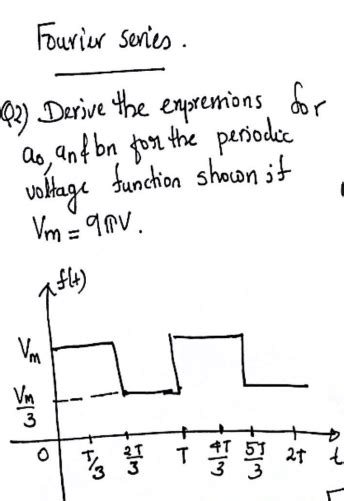 Fourier series.
Q2) Derive the expressions for
a₀, aₙ & bₙ for the periodic
voltage function shown if
Vm = 9πV.
f(t)
Vm
Vm/3
0 T/3 2T/3 T 4T/3 5T/3 2T t